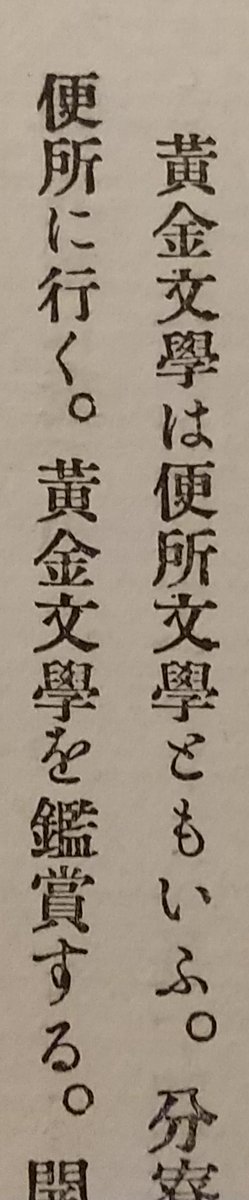 黃金文學は便所文學ともいふ。分
便所に行く。黃金文學を鑑賞する。